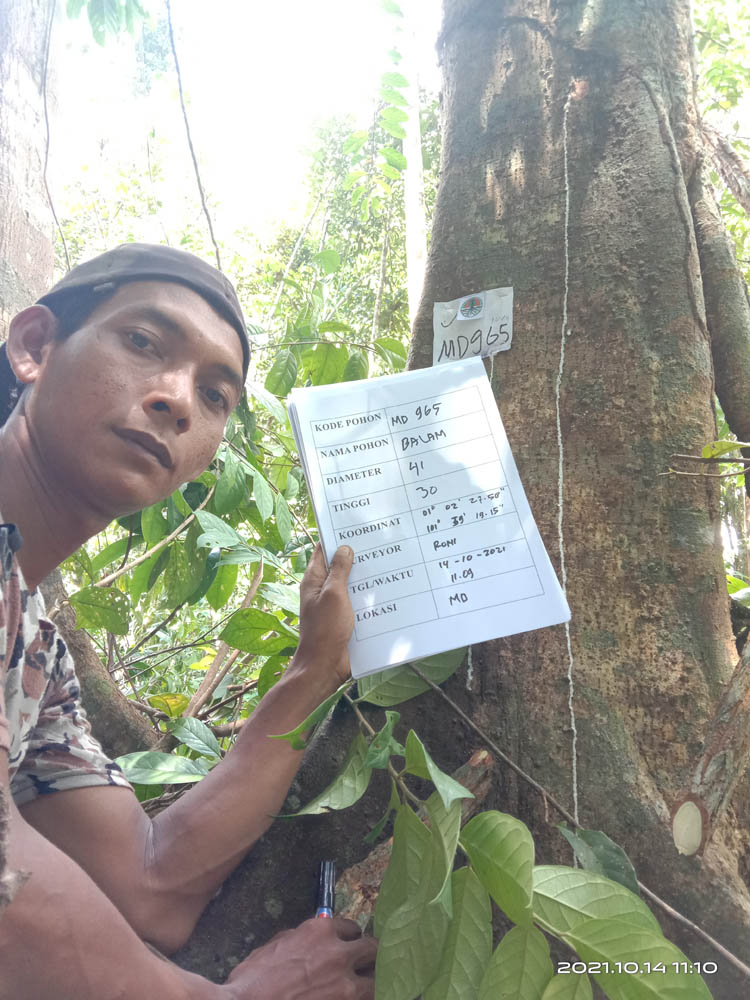 MD965
KODE POHON MD 965
NAMA POHON BALAM
DIAMETER 41
TINGGI 30
KOORDINAT 01° 02' 27.50"
101° 39' 19.15"
SURVEYOR RONI
TGL/WAKTU 14-10-2021
11.09
LOKASI MD
2021.10.14 11:10